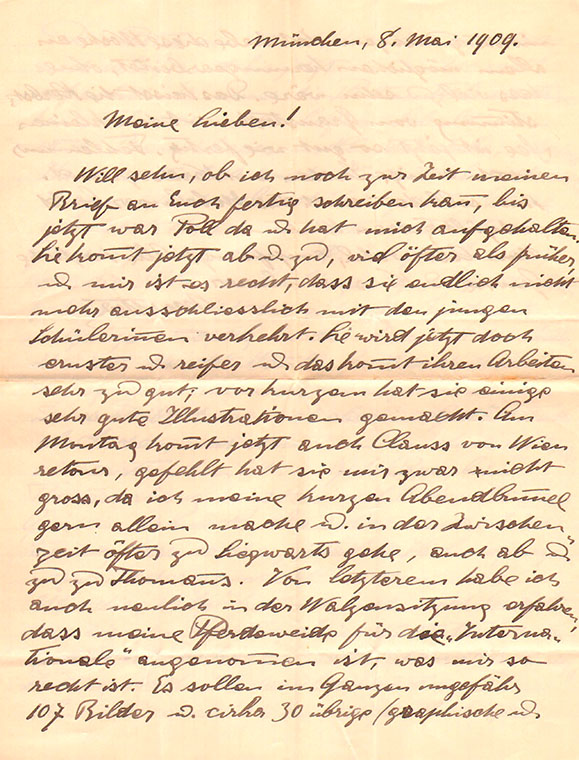 München, 8. Mai 1909.
Meine Lieben!
Will sehn, ob ich noch zur Zeit meinen
Brief an Euch fertig schreiben kan̄, bis
jetzt war Poli da u. hat mich aufgehalten.
Sie kom̄t jetzt ab u. zu, viel öfter als früher,
u. mir ist es recht, dass sie endlich nicht
mehr ausschliesslich mit den jungen
Schülerin̄en verkehrt. Sie wird jetzt doch
ernster u. reifer u. das kom̄t ihren Arbeiten
sehr zu gut; vor kurzem hat sie einige
sehr gute Illustrationen gemacht. Am
Montag kom̄t jetzt auch Clauss von Wien
retour, gefehlt hat sie mir zwar nicht
gross, da ich meine kurzen Abendbum̄el
gern allein mache u. in der Zwischen
zeit öfter zu Siegwarts gehe, auch ab u.
zu zu Thomans. Von letzterem habe ich
auch neulich in der Walzensitzung erfahren,
dass meine Pferdeweide für die „Interna„
tionale" angenom̄en ist, was mir so
recht ist. Es sollen im Ganzen ungefähr
107 Bilder u. cirka 30 übrige (graphische u.